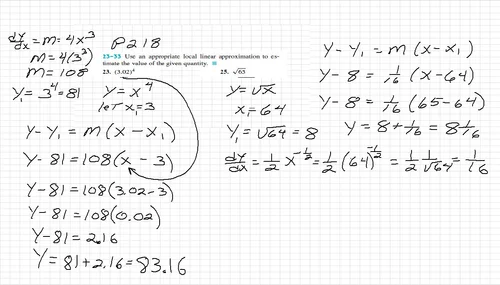 P218
23–33 Use an appropriate local linear approximation to es-
timate the value of the given quantity.
23. (3.02)⁴
25. √65
dy/dx = m = 4x³
m = 4(3³)
m = 108
y₁ = 3⁴ = 81
y = x⁴
let x₁ = 3
y - y₁ = m(x - x₁)
y - 81 = 108(x - 3)
y - 81 = 108(3.02 - 3)
y - 81 = 108(0.02)
y - 81 = 2.16
y = 81 + 2.16 = 83.16
y = √x
x₁ = 64
y₁ = √64 = 8
dy/dx = 1/2 x^(-1/2) = 1/2 (64)^(-1/2) = 1/2 1/√64 = 1/16
y - y₁ = m(x - x₁)
y - 8 = 1/16 (x - 64)
y - 8 = 1/16 (65 - 64)
y = 8 + 1/16 = 8 1/16